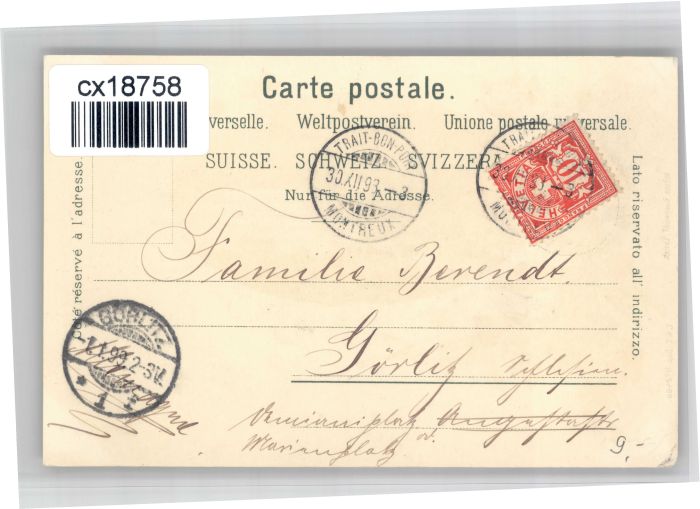 cx18758
Carte postale.
verselle. Weltpostverein. Unione postale universale.
SUISSE. SCHWEIZ. SVIZZERA
Nur für die Adresse.
Côté réservé à l'adresse.
Lato riservato all' indirizzo.
TRAIT-BON-PORT
30.XII.99.-3
MONTREUX
HELVETIA
10
Familie Berendt.
Görlitz Schlesien.
Augustastr
Marienplatz
GÖRLITZ
2-3V.
* 1
9.-